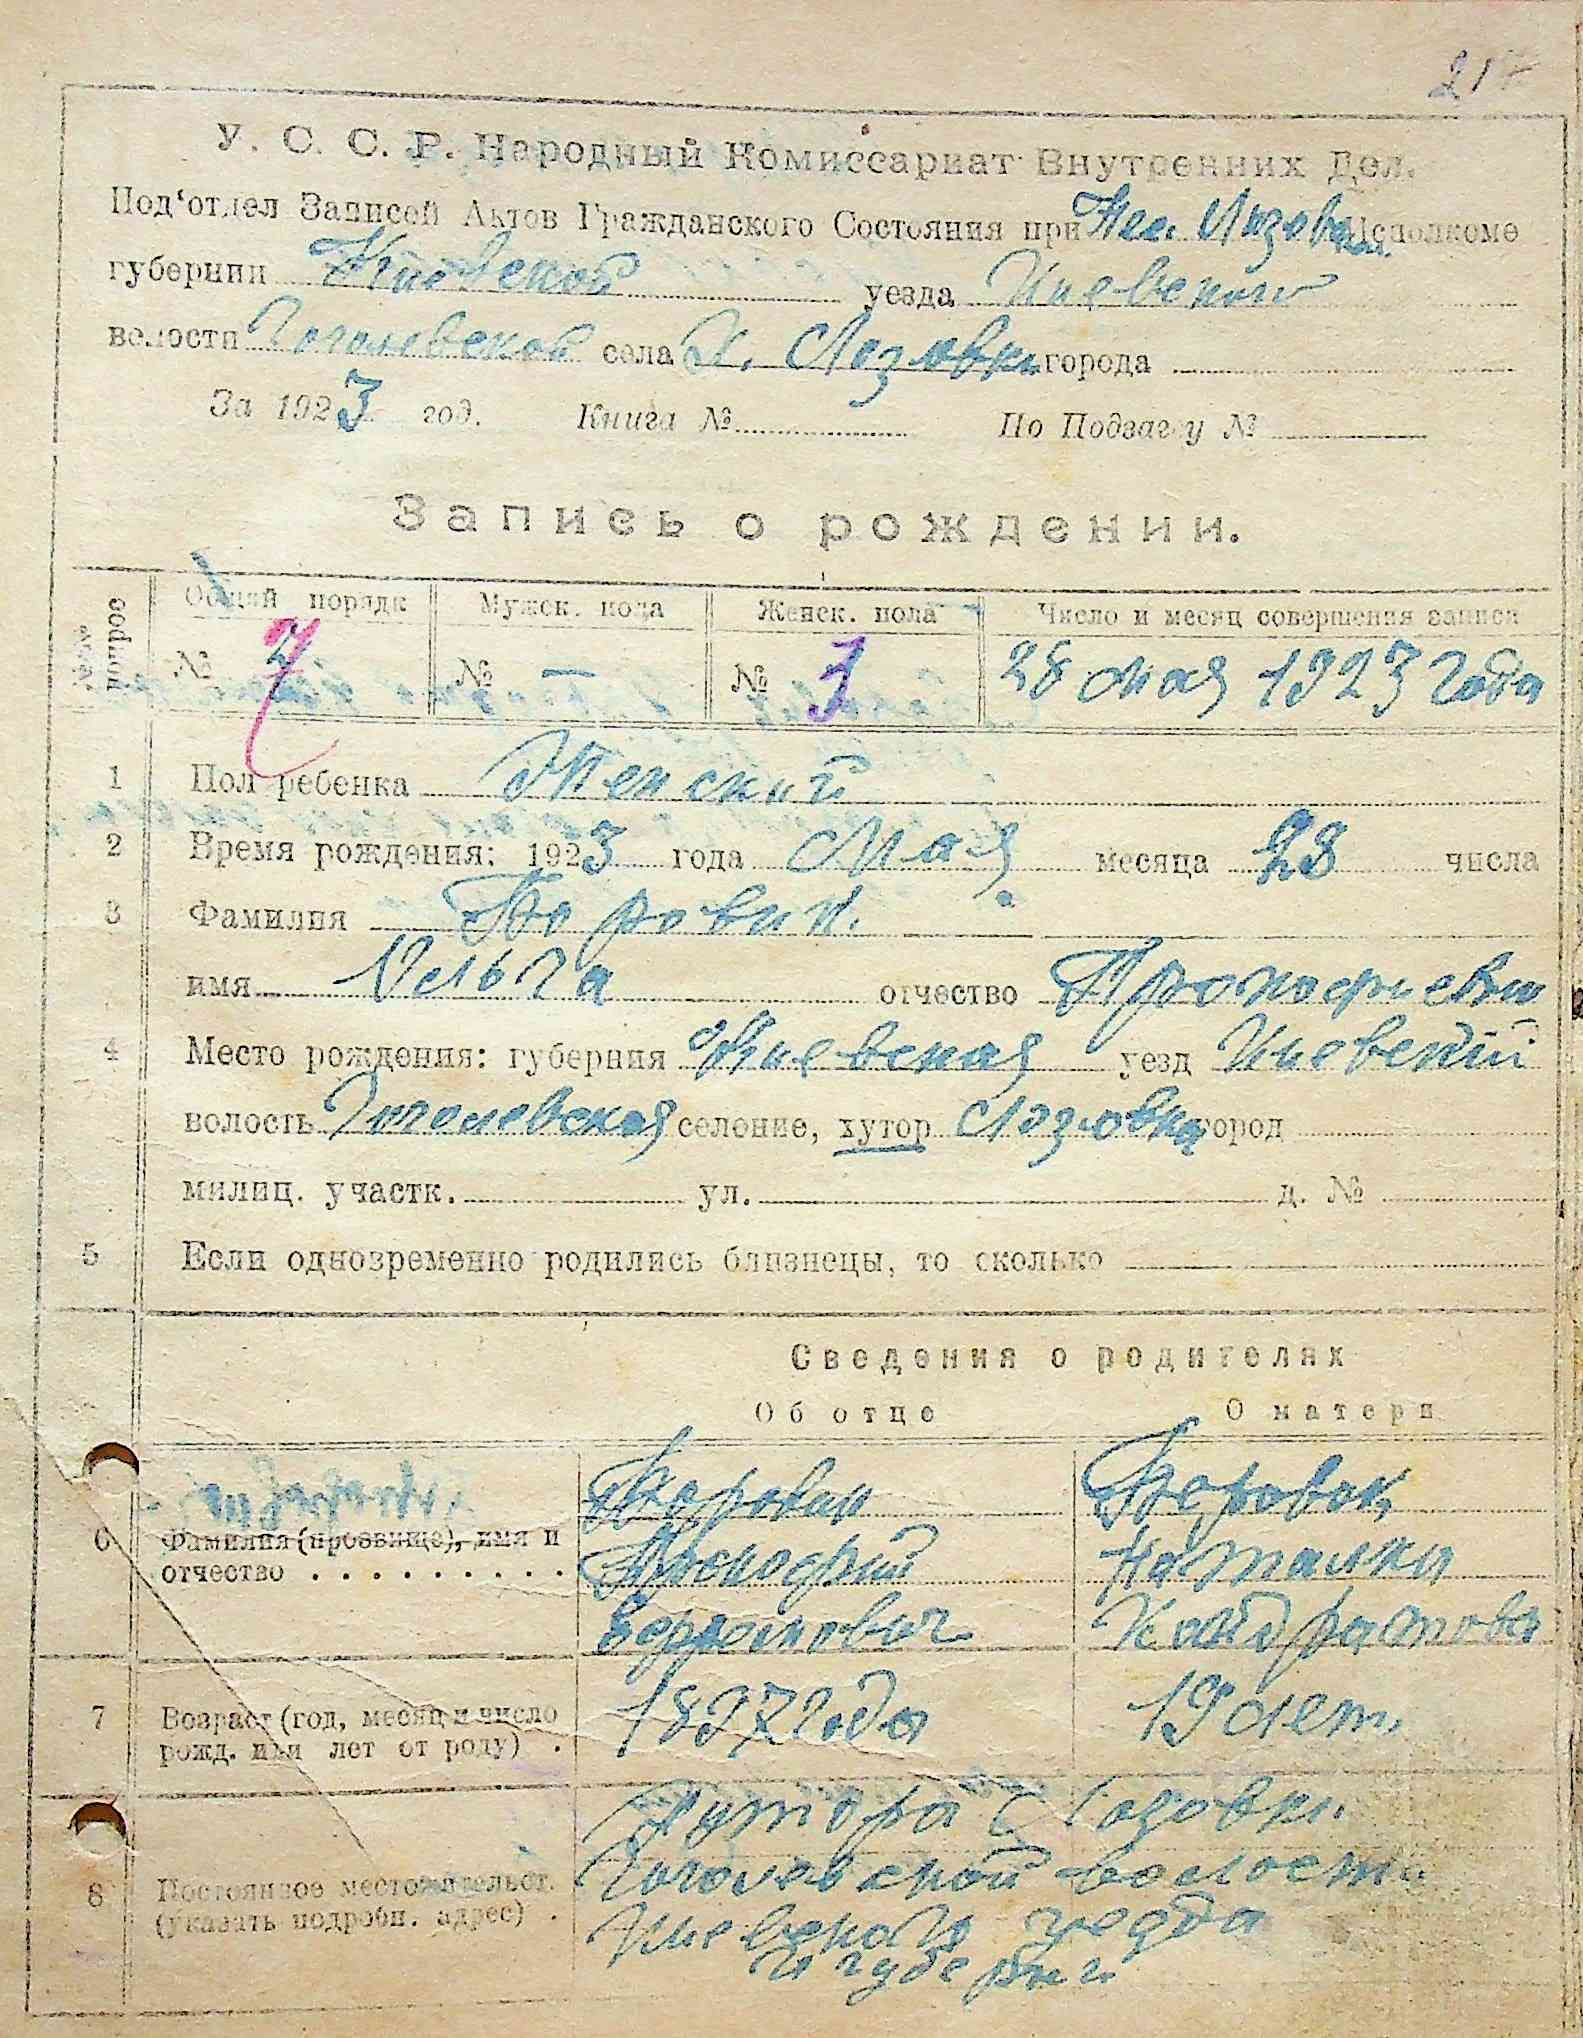 217
У. С. С. Р. Народный Комиссариат Внутренних Дел.
Под'отдел Записей Актов Гражданского Состояния при Исполкоме
губернии Киевской уезда Киевского
волости Гоголевской села Х. Лозовки города
За 1923 год. Книга № По Подзагсу №
Запись о рождении.
вопрос Общий порядк Мужск. пола Женск. пола Число и месяц совершения записи
№ 7 № — № 3 28 мая 1923 года
1 Пол ребенка Женский
2 Время рождения: 1923 года мая месяца 28 числа
3 Фамилия
имя Ольга отчество Прокофиевна
4 Место рождения: губерния Киевская уезд Киевский
волость Гоголевская селение, хутор Лозовка город
милиц. участк. ул. д. №
5 Если одновременно родились близнецы, то сколько
Сведения о родителях
Об отце О матери
6 Фамилия (прозвище), имя и
отчество
Прокофий Наталка
Кондратова
7 Возраст (год, месяц и число
рожд. или лет от роду) . 1897 года 19 лет.
Хутора Лозовки
Гоголевской волости
8 Постоянное местожительст.
(указать подробн. адрес) .
Киевского уезда
и губернии